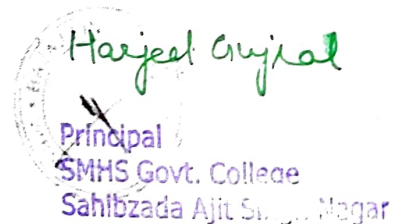 Harjeet Gujral
Principal
SMHS Govt. College
Sahibzada Ajit Nagar